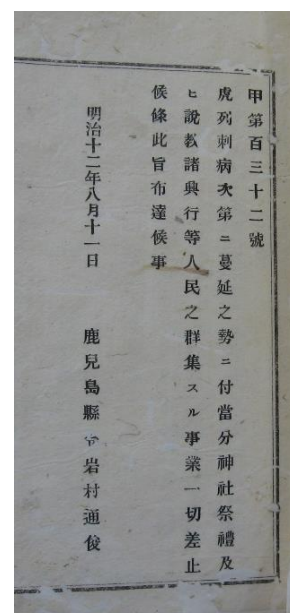 甲第百三十二號
虎列刺病次第ニ蔓延之勢ニ付當分神社祭禮及
ヒ說教諸興行等人民之群集スル事業一切差止
候條此旨布達候事
明治十二年八月十一日
鹿兒島縣令岩村通俊